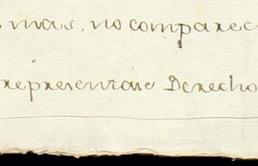 mas. no comparec
representare Derecho